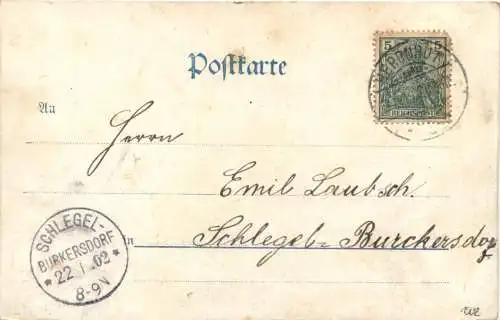 Postkarte
5 5
REICHSPOST
An
Herrn
Emil Laubsch.
in
Schlegel-Burckersdorf
SCHLEGEL-
BURKERSDORF
* 22 1 02 *
8-9N